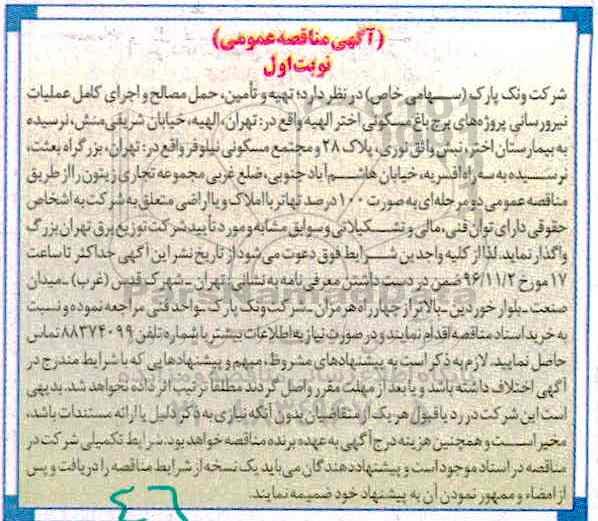 (آگهی مناقصه عمومی)
نوبت اول
شرکت ونک پارک (سهامی خاص) در نظر دارد؛ تهیه و تأمین، حمل مصالح و اجرای کامل عملیات
نیرورسانی پروژه‌های برج باغ مسکونی اختر الهیه واقع در: تهران، الهیه، خیابان شریفی‌منش، نرسیده
به بیمارستان اختر، نبش واثق نوری، پلاک ۲۸ و مجتمع مسکونی نیلوفر واقع در: تهران، بزرگراه بعثت،
نرسیده به سه راه افسریه، خیابان هاشم‌آباد جنوبی، ضلع غربی مجموعه تجاری زیتون را از طریق
مناقصه عمومی دو مرحله‌ای به صورت ۱۰۰ درصد تهاتر با املاک و یا اراضی متعلق به شرکت به اشخاص
حقوقی دارای توان فنی، مالی و تشکیلاتی و سوابق مشابه و مورد تأیید شرکت توزیع برق تهران بزرگ
واگذار نماید. لذا از کلیه واجدین شرایط فوق دعوت می‌شود از تاریخ نشر این آگهی حداکثر تا ساعت
۱۷ مورخ ۹۶/۱۱/۲ ضمن در دست داشتن معرفی‌نامه به نشانی: تهران ـ شهرک قدس (غرب) ـ میدان
صنعت ـ بلوار خوردین ـ بالاتر از چهارراه هرمزان ـ شرکت ونک پارک ـ واحد فنی مراجعه نموده و نسبت
به خرید اسناد مناقصه اقدام نمایند و در صورت نیاز به اطلاعات بیشتر با شماره تلفن ۸۸۳۷۴۰۹۹ تماس
حاصل نمایید. لازم به ذکر است به پیشنهادهای مشروط، مبهم و پیشنهادهایی که با شرایط مندرج در
آگهی اختلاف داشته باشد و یا بعد از مهلت مقرر واصل گردند مطلقاً ترتیب اثر داده نخواهد شد. بدیهی
است این شرکت در رد یا قبول هر یک از متقاضیان بدون آنکه نیازی به ذکر دلیل یا ارائه مستندات باشد،
مخیر است و همچنین هزینه درج آگهی به عهده برنده مناقصه خواهد بود. شرایط تکمیلی شرکت در
مناقصه در اسناد موجود است و پیشنهاددهندگان می‌باید یک نسخه از شرایط مناقصه را دریافت و پس
از امضاء و ممهور نمودن آن به پیشنهاد خود ضمیمه نمایند.
ParsNamadData